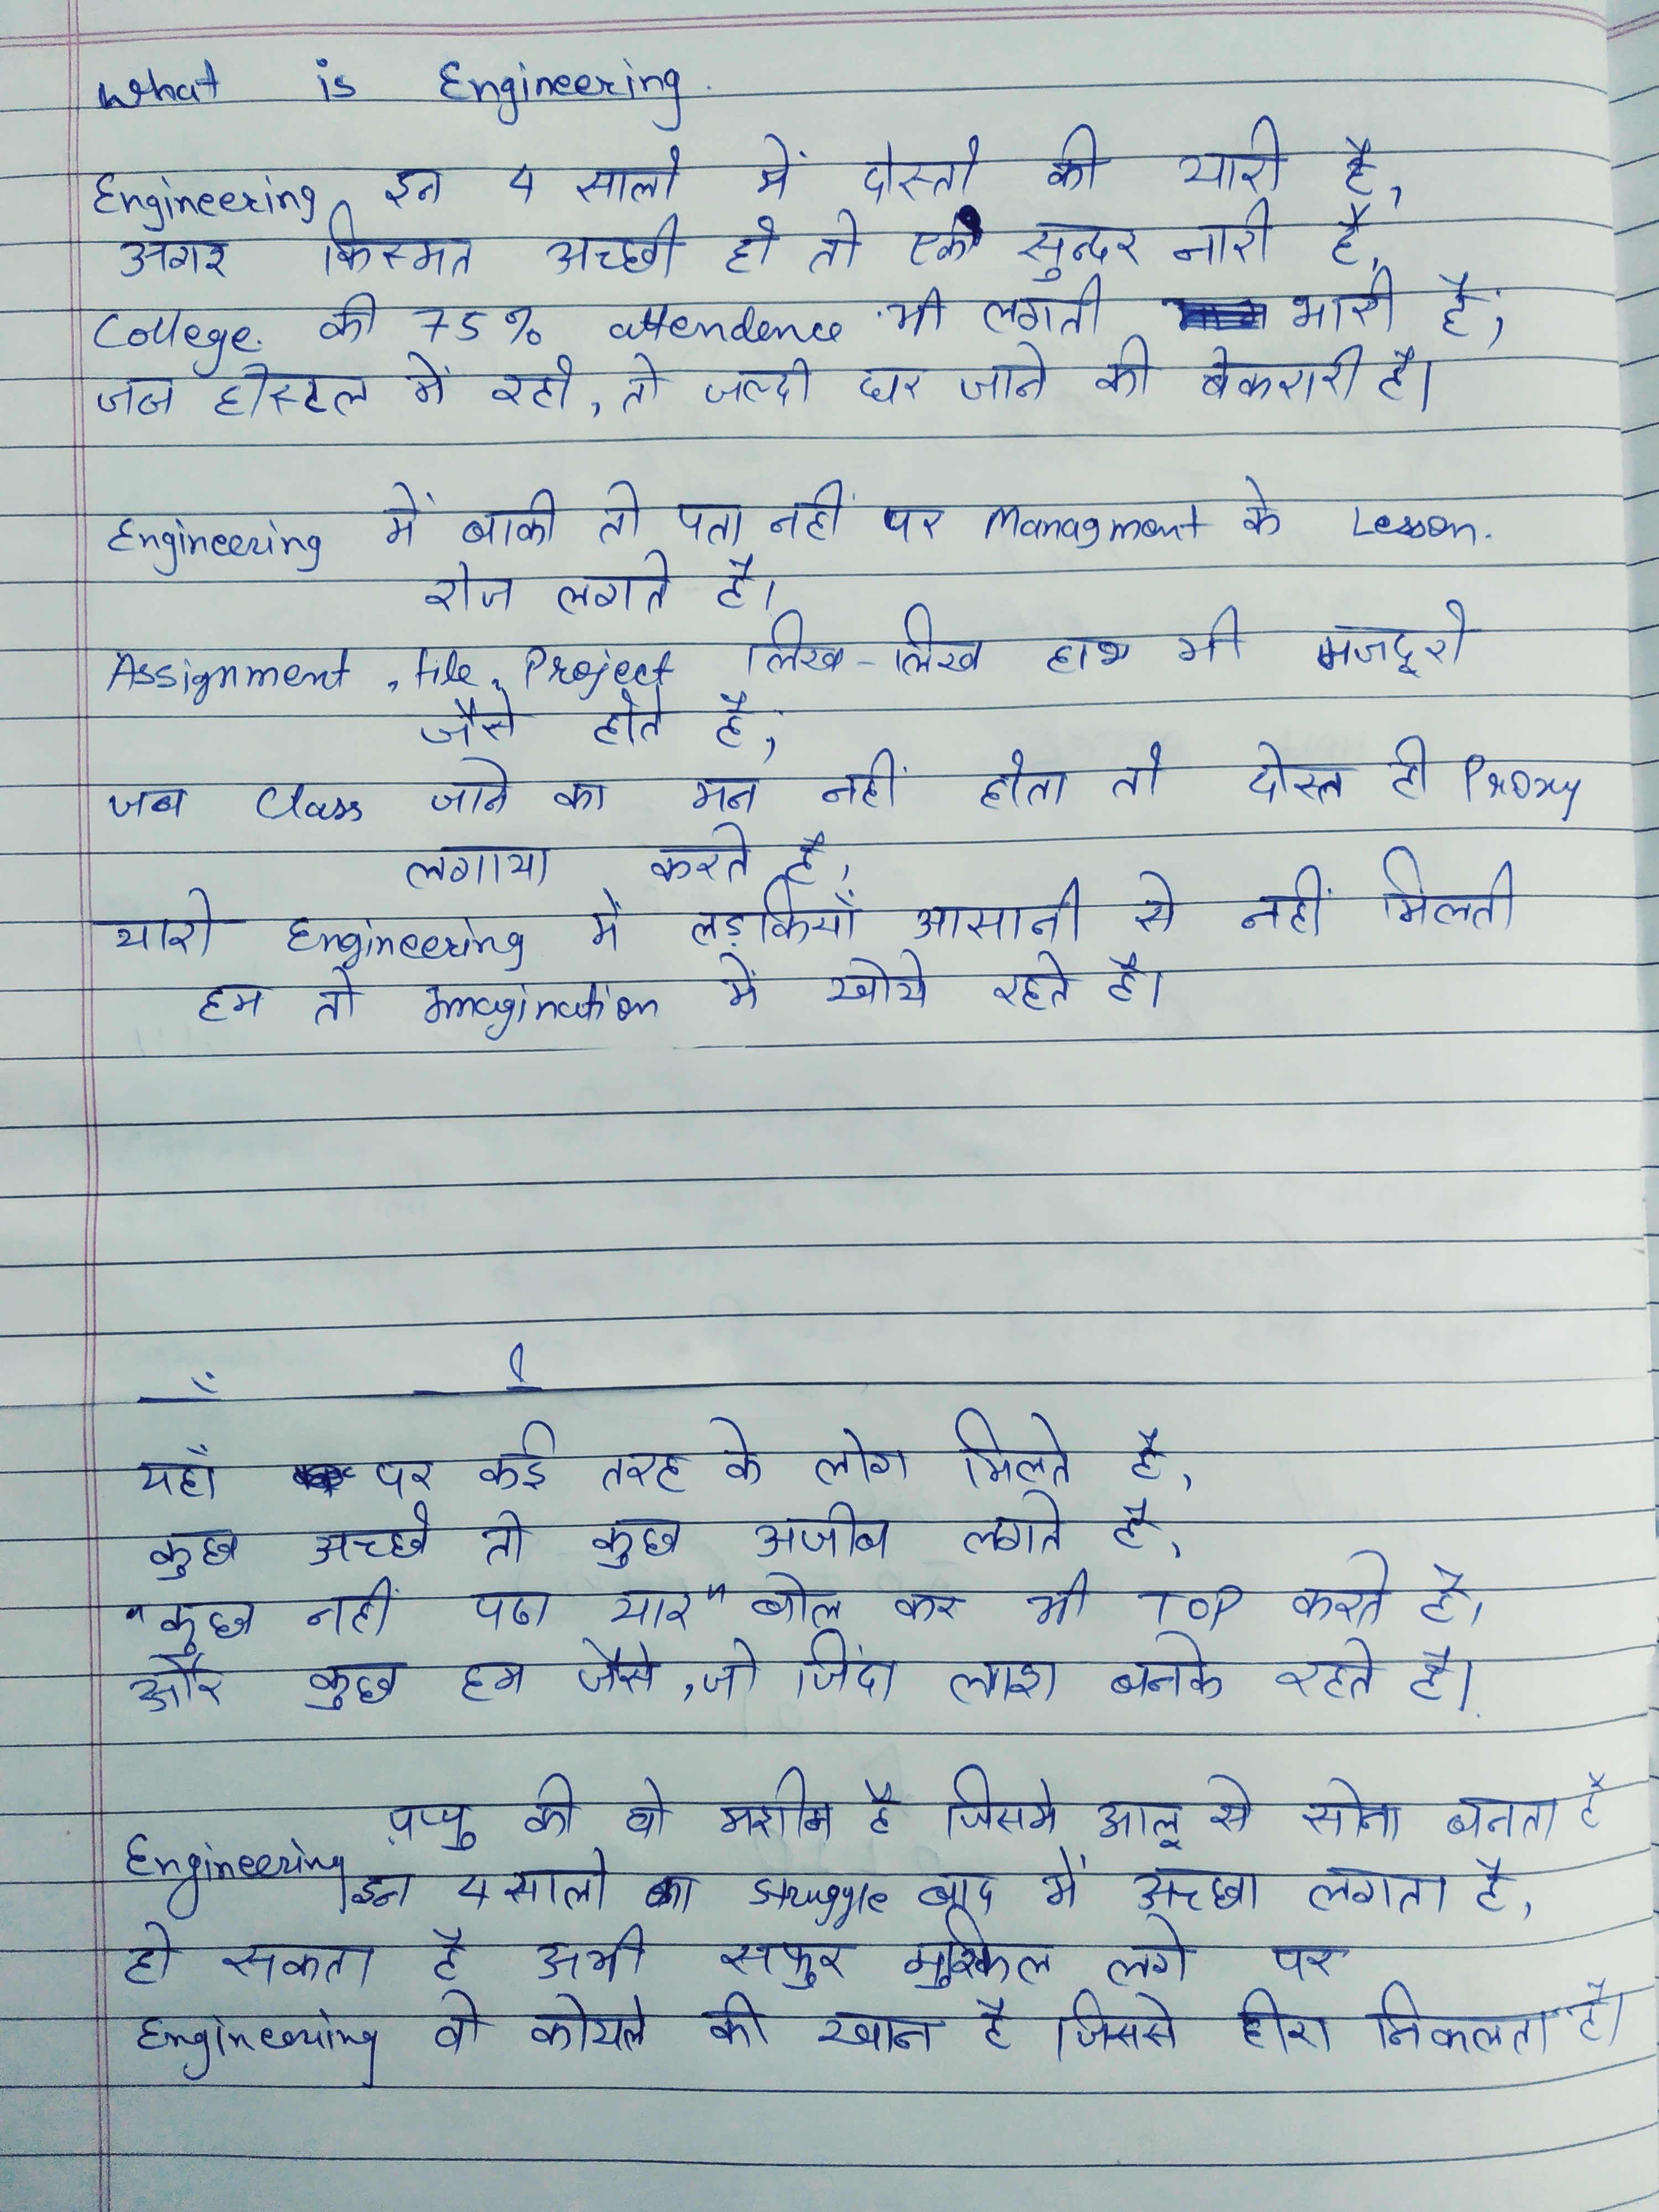 What is Engineering.
Engineering इन 4 सालो में दोस्तो की यारी है,
अगर किस्मत अच्छी हो तो एक सुन्दर नारी है,
College. की 75% attendence भी लगती भारी है,
जब होस्टल में रहो, तो जल्दी घर जाने की बेकरारी है।
Engineering में बाकी तो पता नहीं पर Managment के Lesson.
रोज लगते है।
Assignment, file, Project लिख-लिख हाथ भी मजदूरो
जैसे होते है,
जब Class जाने का मन नहीं होता तो दोस्त ही Proxy
लगाया करते है,
यारो Engineering में लड़कियाँ आसानी से नहीं मिलती
हम तो Imagination में खोये रहते है।
यहाँ पर कई तरह के लोग मिलते है,
कुछ अच्छे तो कुछ अजीब लगते है,
"कुछ नहीं पढा यार" बोल कर भी TOP करते है,
और कुछ हम जैसे, जो जिंदा लाश बनके रहते है।
Engineering पप्पु की वो मशीन है जिसमे आलू से सोना बनता है
इन 4 सालो का Struggle बाद में अच्छा लगता है,
हो सकता है अभी सफर मुश्किल लगे पर
Engineering वो कोयले की खान है जिससे हीरा निकलता है।